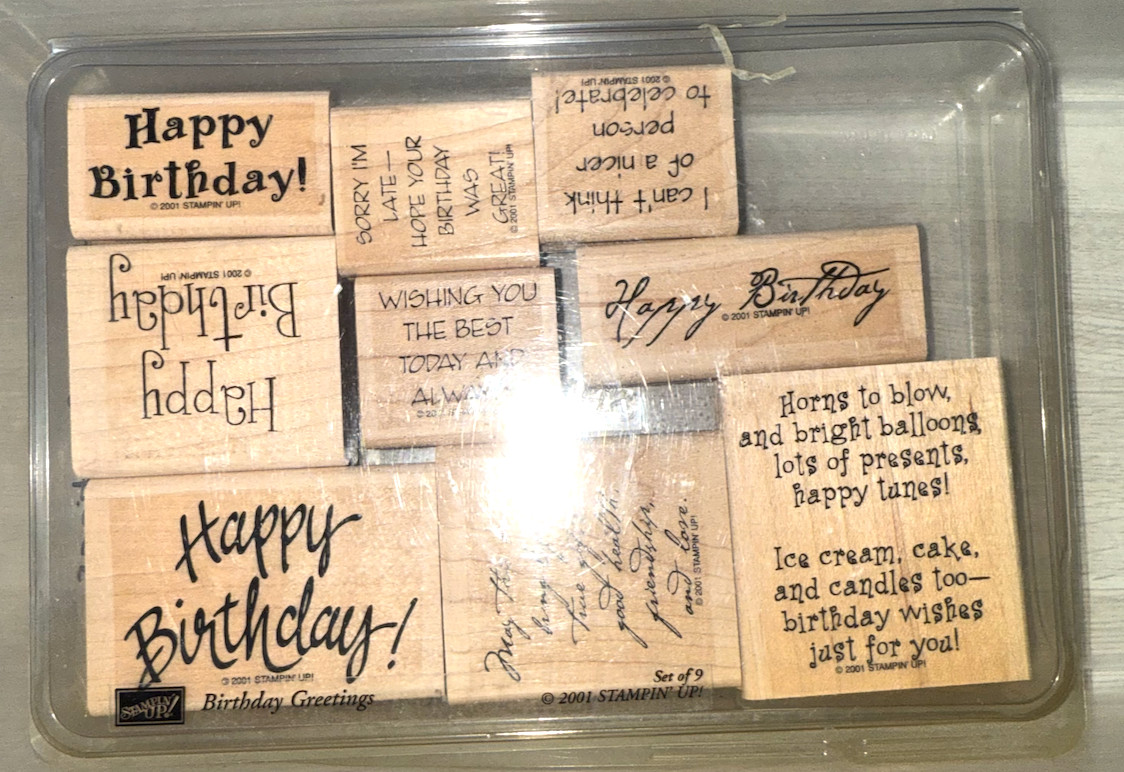 Happy
Birthday!
© 2001 STAMPIN' UP!
SORRY I'M
LATE—
HOPE YOUR
BIRTHDAY
WAS
GREAT!
© 2001 STAMPIN' UP!
I can't think
of a nicer
person
to celebrate!
© 2001 STAMPIN' UP!
Happy
Birthday
© 2001 STAMPIN' UP!
WISHING YOU
THE BEST
TODAY AND
Happy Birthday
© 2001 STAMPIN' UP!
Happy
Birthday!
© 2001 STAMPIN' UP!
May
good health,
friendship,
and love.
© 2001 STAMPIN' UP!
Horns to blow,
and bright balloons,
lots of presents,
happy tunes!
Ice cream, cake,
and candles too—
birthday wishes
just for you!
© 2001 STAMPIN' UP!
STAMPIN' UP!
Birthday Greetings
Set of 9
© 2001 STAMPIN' UP!